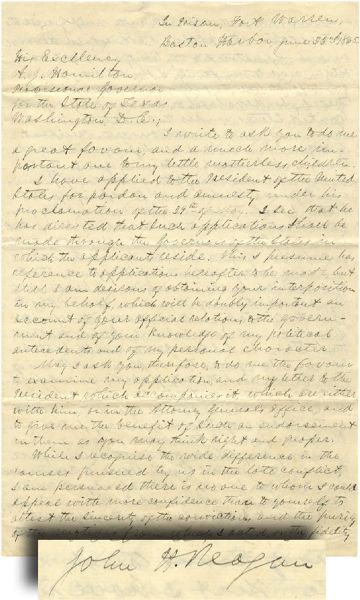 In Prison, Fort Warren,
Boston Harbor June 1865
His Excellency
A. J. Hamilton
Provisional Governor
for the State of Texas
Washington D.C.
I write to ask you to do me
a great favour, and a much more im-
portant one to my little motherless children.
I have applied to the President of the United
States for pardon and amnesty under his
proclamation of the 29th of May. I see that he
has directed that such applications shall be
made through the Governors of the States in
which the applicants reside. This I presume has
reference to applications hereafter to be made, but
still I am desirous of obtaining your interposition
in my behalf, which will be doubly important on
account of your official relations to the govern-
ment and of your knowledge of my political
antecedents and of my personal character.
May I ask you, therefore, to do me the favour
to examine my application, and my letter to the
President which accompanies it, which are either
with him or in the Attorney Generals office, and
to give me the benefit of such an endorsement
on them as you may think right and proper.
While I recognise the wide difference in the
courses pursued by us in the late conflict,
I am persuaded there is no one to whom I could
appeal with more confidence than to yourself to
attest the sincerity of the conviction, and the purity
of the
John H. Reagan